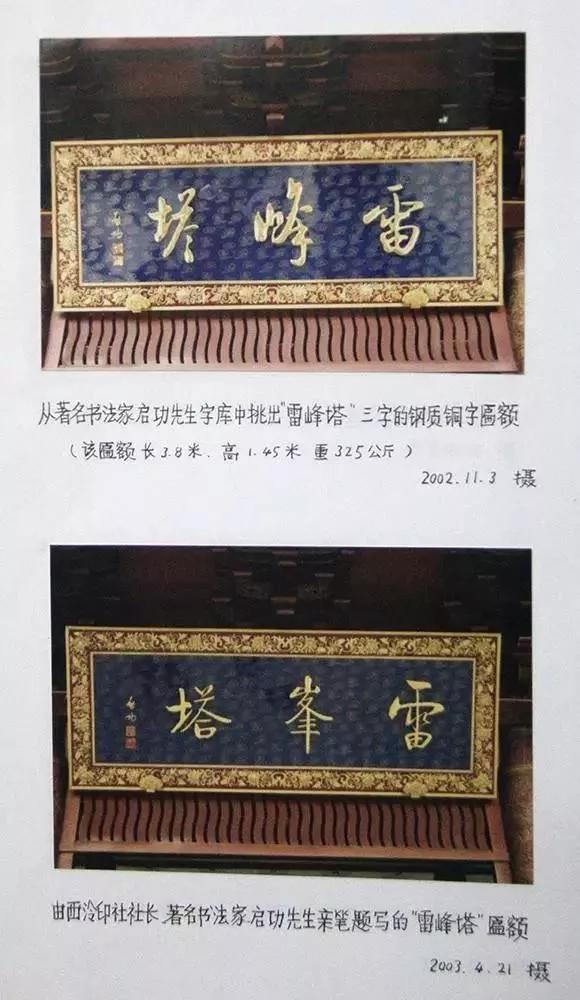 雷峰塔
启功
从著名书法家启功先生字库中挑出"雷峰塔"三字的钢质铜字匾额
（该匾额长3.8米、高1.45米 重325公斤）
2002.11.3 摄
雷峯塔
启功
由西泠印社社长、著名书法家启功先生亲笔题写的"雷峰塔"匾额
2003.4.21 摄